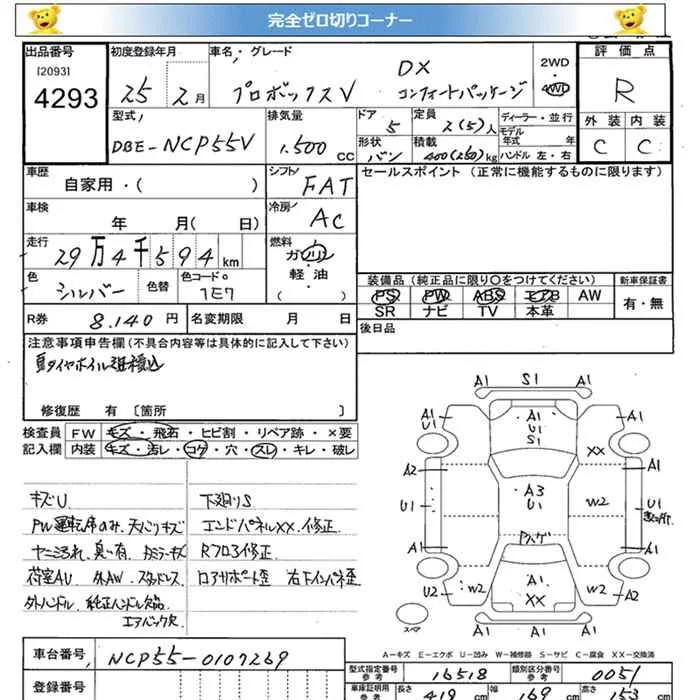 完全ゼロ切りコーナー
出品番号
[2093]
4293
初度登録年月
25 2月
車名・グレード
DX
プロボックスV コンフォートパッケージ
2WD
4WD
評価点
R
外装 内装
C C
型式
DBE-NCP55V
排気量
1,500 CC
ドア
5
定員
2(5)人
ディーラー・並行
モデル
年式 年
形状
バン
積載
400(250)kg
ハンドル 左・右
車歴
自家用・( )
シフト
FAT
セールスポイント (正常に機能するものに限ります)
車検
年 月( 日)
冷房
AC
走行
29万4千594km
燃料
ガソリン
軽・油
・( )
色
シルバー
色替
色コードo
1E7
装備品 (純正品に限り〇をつけてください)
新車保証書
PS PW ABS エアB AW
SR ナビ TV 本革
有・無
R券 8.140円
名変期限 月 日
後日品
注意事項申告欄(不具合内容等は具体的に記入して下さい)
修復歴 有 〔箇所 〕
検査員
記入欄
FW キズ・飛石・ヒビ割・リペア跡・×要
内装 キズ・汚レ・コゲ・穴・スレ・キレ・破レ
キズU
PW運転席のみ、天バリキズ
荷室AU 外AW スタッドレス
外ハンドル、純正ハンドル欠品
エアバック欠
下廻りS
エンドパネルXX、修正
Rフロア修正
ロアサポート歪 右下インパネ歪
A1 S1 A1
A1
U1
A1
U1
S1
A1
U1
XX
A2
A1
U1
A3
U1
W2
U1
A1
A1
U2
W2
パハゲ
A1
XX
W2
U2
A1 A1
スペア
A-キズ E-エクボ U-凹み W-補修跡 S-サビ C-腐食 XX-交換済
車台番号 NCP55-0107269
型式指定番号
参考
16518
類別区分番号
参考
0051
登録番号
車庫証明用
参考
長さ 419 cm 幅 169 cm 高さ 153 cm